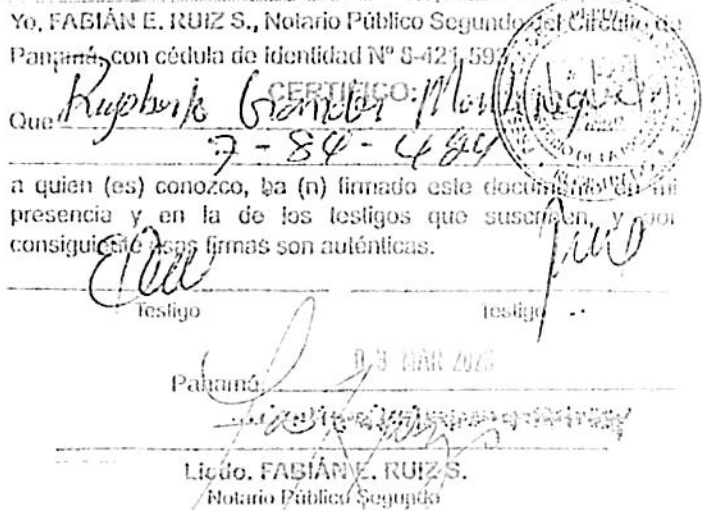 Yo, FABIÁN E. RUIZ S., Notario Público Segundo del Circuito de
Panamá, con cédula de identidad Nº 8-421-593
CERTIFICO:
Que
7-84-484
a quien (es) conozco, ha (n) firmado este documento en mi
presencia y en la de los testigos que suscriben, y por
consiguiente esas firmas son auténticas.
Testigo Testigo
03 MAR
Panamá,
Licdo. FABIÁN E. RUIZ S.
Notario Público Segundo